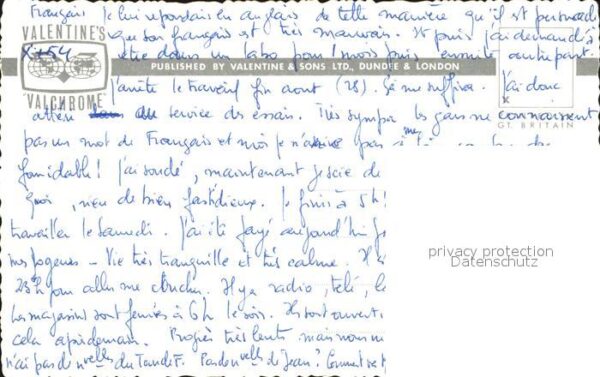 Français je lui répondais en anglais de telle manière qu'il est persuadé
VALENTINE'S que son français est très mauvais. Et puis j'ai demandé
X+54 être dans un labo pour 1 mois puis ensuite autre part
PUBLISHED BY VALENTINE & SONS LTD., DUNDEE & LONDON
j'arrête le travail fin aout (28). Ça me suffira. J'ai donc
"VALCHROME"
au service des essais. Très sympa les gens ne connaissent
GT. BRITAIN
pas un mot de Français et moi je n'a pas
formidable! J'ai soudé, maintenant je scie de
quoi, rien de bien fastidieux. Je finis à 5h
travailler le samedi. J'ai été payé aujourd'hui
mes logeurs - Vie très tranquille et très calme. Il
23h pour aller me coucher. Il y a radio, télé, le
les magasins sont fermés à 6h le soir. Ils sont ouvert
cela après demain. Progrès très lents mais nous
n'ai pas de nvelles du T and T. Pas de nvelles de Jean? Comment va
privacy protection
Datenschutz